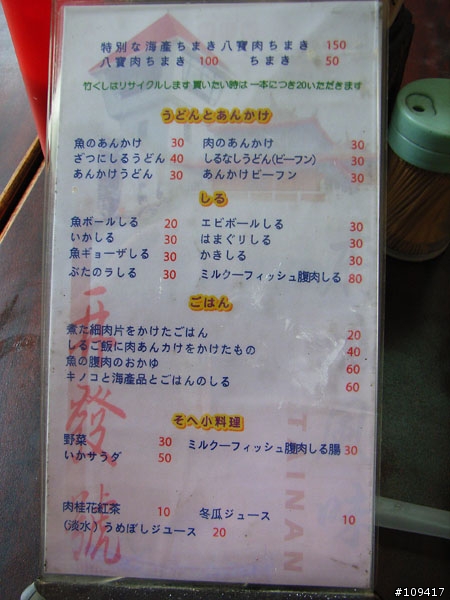 特別な海產ちまき八寶肉ちまき 150
八寶肉ちまき 100 ちまき 50
竹くしはリサイクルします 買いたい時は 一本につき20いただきます
うどんとあんかけ
魚のあんかけ 30 肉のあんかけ 30
ざつにしるうどん 40 しるなしうどん(ビーフン) 30
あんかけうどん 30 あんかけビーフン 30
しる
魚ボールしる 20 エビボールしる 30
いかしる 30 はまぐりしる 30
魚ギョーザしる 30 かきしる 30
ぶたのラしる 30 ミルクーフィッシュ腹肉しる 80
ごはん
煮た細肉片をかけたごはん 20
しるご飯に肉あんカけをかけたもの 40
魚の腹肉のおかゆ 60
キノコと海產品とごはんのしる 60
そへ小料理
野菜 30 ミルクーフィッシュ腹肉しる腸 30
いかサラダ 50
肉桂花紅茶 10 冬瓜ジュース 10
(淡水)うめぼしジユース 20
再發號
TAINAN
#109417